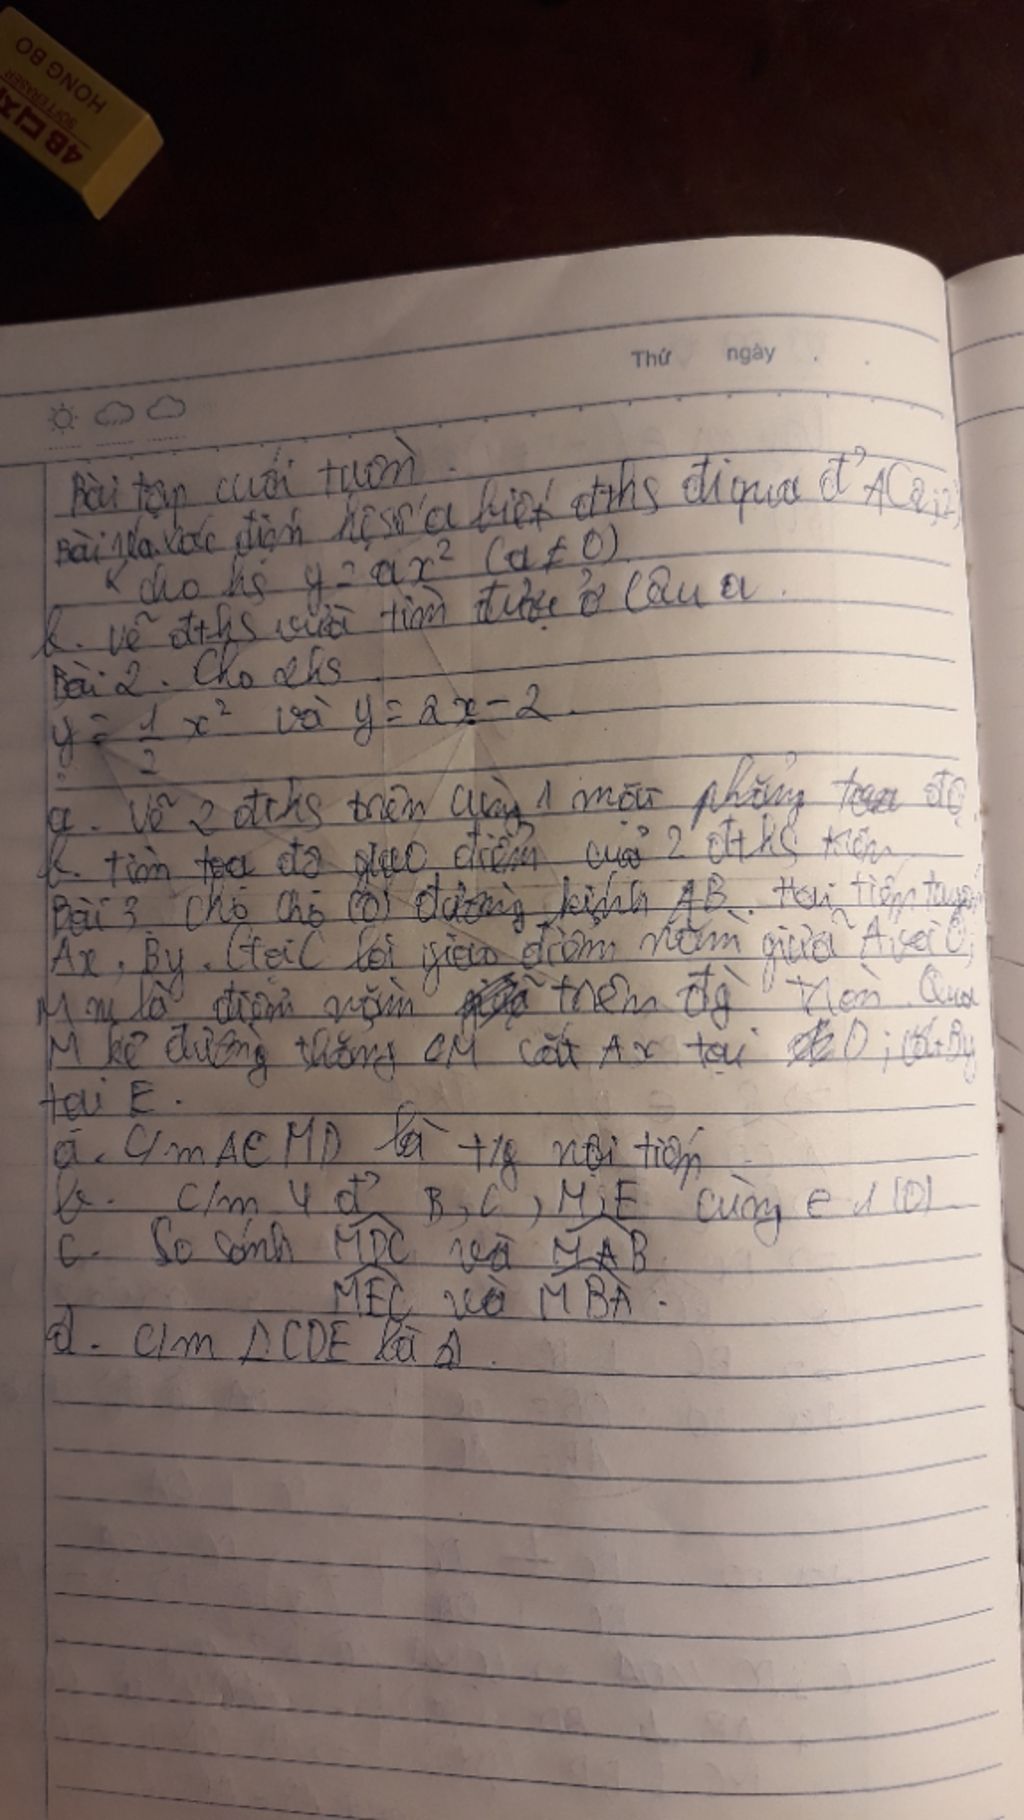 HONG BO
SOFT ERASER
4B
Thứ ngày . .
Bài tập cuối tuần.
Bài 1 a. xác định hệ số a biết đths đi qua đ' A(2;2)
cho hs y = ax² (a ≠ 0)
b. vẽ đths vừa tìm được ở câu a.
Bài 2. Cho 2hs
y = 1/2 x² và y = 2x - 2.
a. Vẽ 2 đths trên cùng 1 mặt phẳng toạ độ
b. tìm toạ độ giao điểm của 2 đths trên
Bài 3 Cho (O) đường kính AB. tiếp tuyến
Ax, By. giao điểm nằm giữa A và O;
M là điểm nằm trên đg tròn. Qua
M kẻ đường thẳng CM cắt Ax tại D; cắt By
tại E.
a. C/m ACMD là t/g nội tiếp
b. C/m 4 đ' B, C, M, E cùng ∈ 1 (O)
c. So sánh MDC và MAB
MEC và MBA.
d. C/m ΔCDE là Δ.